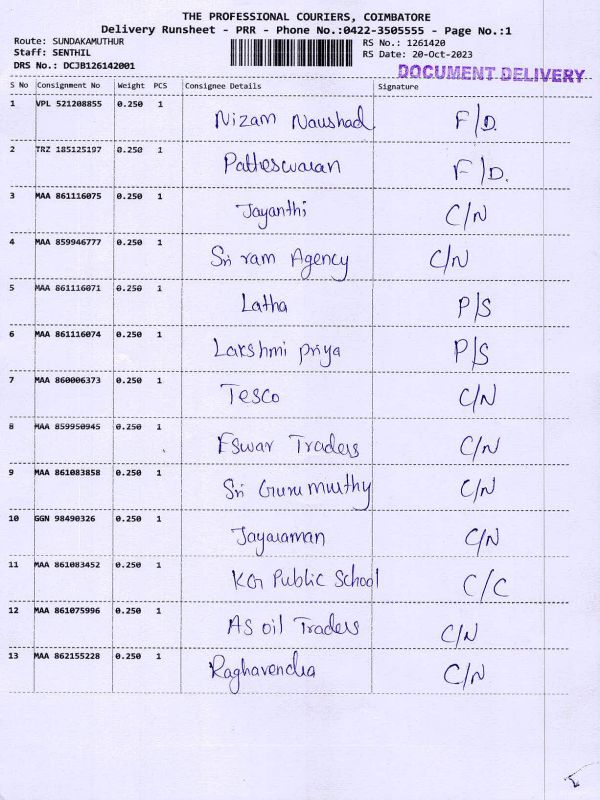 THE PROFESSIONAL COURIERS, COIMBATORE
Delivery Runsheet - PRR - Phone No.:0422-3505555 - Page No.:1
Route: SUNDAKAMUTHUR RS No.: 1261420
Staff: SENTHIL RS Date: 20-Oct-2023
DRS No.: DCJB126142001 DOCUMENT DELIVERY
S No Consignment No Weight PCS Consignee Details Signature
1 VPL 521208855 0.250 1 Nizam Naushad F/D.
2 TRZ 185125197 0.250 1 Patheswaran F/D.
3 MAA 861116075 0.250 1 Jayanthi C/N
4 MAA 859946777 0.250 1 Sri ram Agency C/N
5 MAA 861116071 0.250 1 Latha P/S
6 MAA 861116074 0.250 1 Lakshmi priya P/S
7 MAA 860006373 0.250 1 Tesco C/N
8 MAA 859950945 0.250 1 Eswar Traders C/N
9 MAA 861083858 0.250 1 Sri Gurumurthy C/N
10 GGN 98490326 0.250 1 Jayaraman C/N
11 MAA 861083452 0.250 1 KG Public School C/C
12 MAA 861075996 0.250 1 AS oil Traders C/N
13 MAA 862155228 0.250 1 Raghavendra C/N